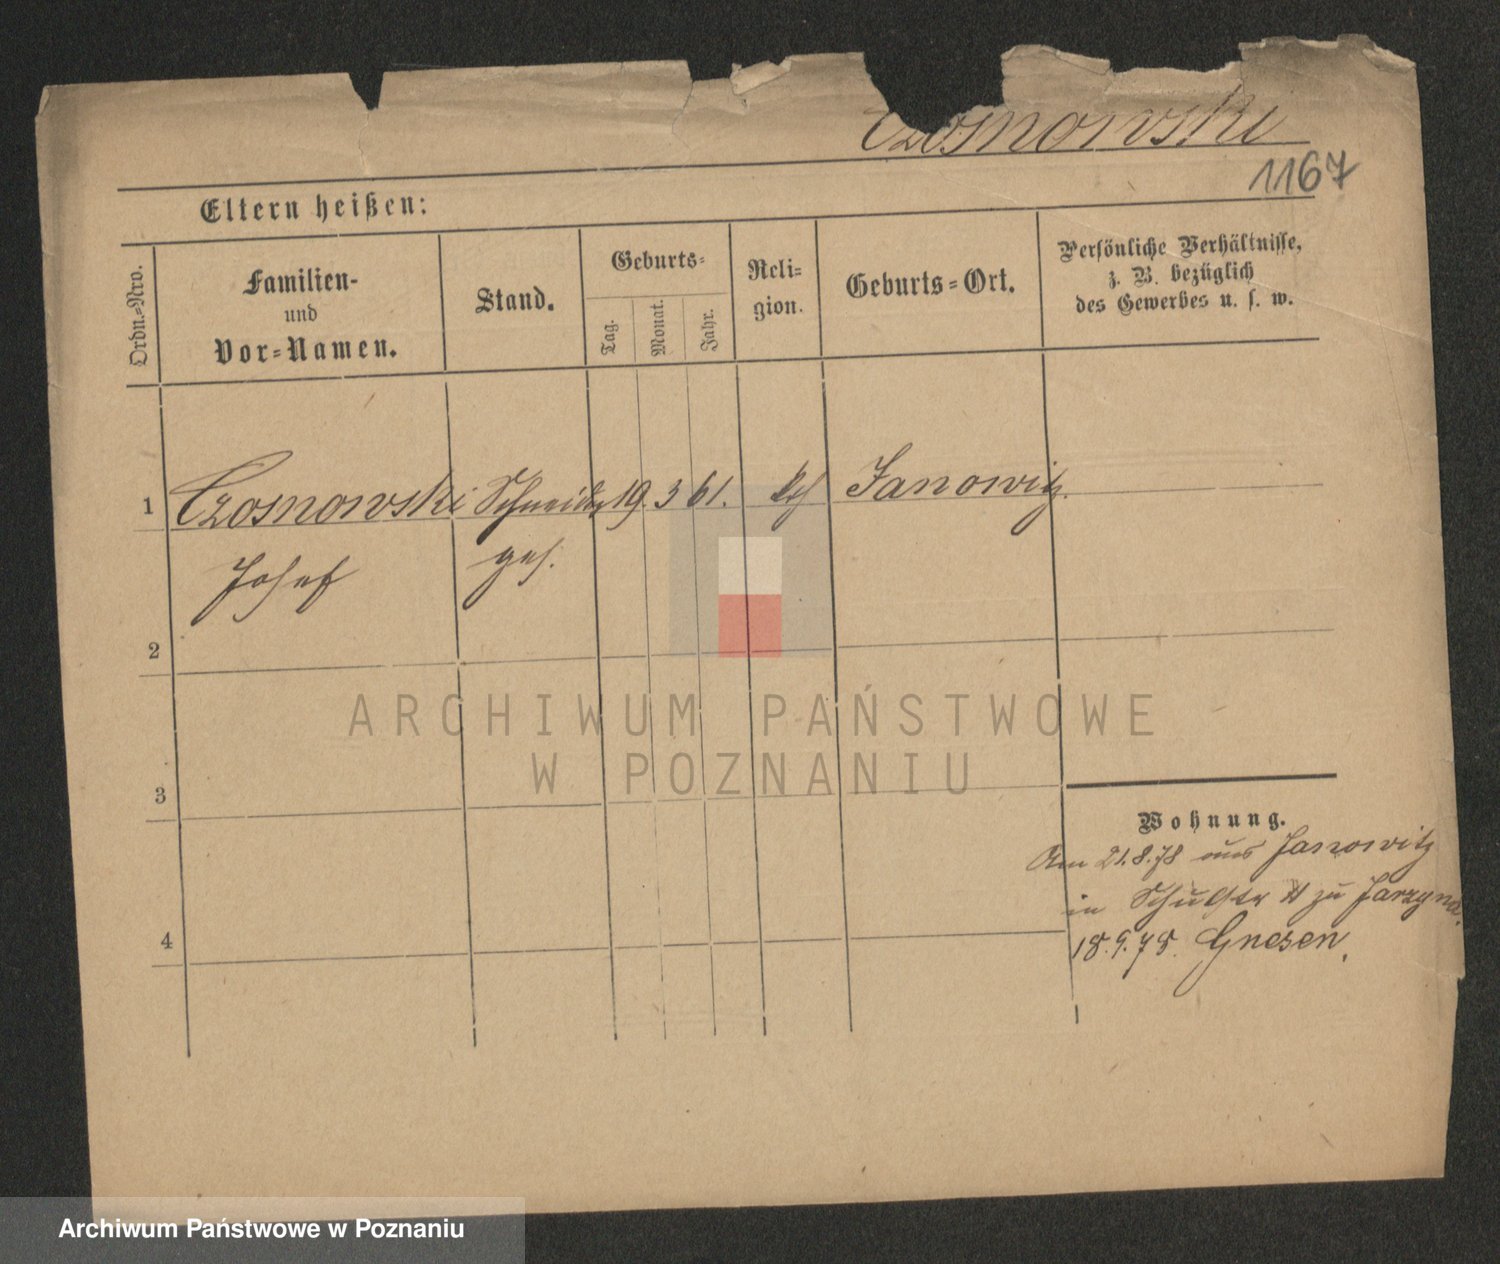 Czosnowski
1167
Eltern heißen:
Ordn.-Nro.
Familien-
und
Vor-Namen.
Stand.
Geburts-
Tag.
Monat.
Jahr.
Reli-
gion.
Geburts-Ort.
Persönliche Verhältnisse,
z. B. bezüglich
des Gewerbes u. s. w.
1 Czosnowski Schneider 19. 3 61. Janowitz.
Josef ges.
2
3
4
Wohnung.
Am 21.8.78 aus Janowitz
in zu Jarzyna.
18.9.78. Gnesen.
ARCHIWUM PAŃSTWOWE
W POZNANIU
Archiwum Państwowe w Poznaniu